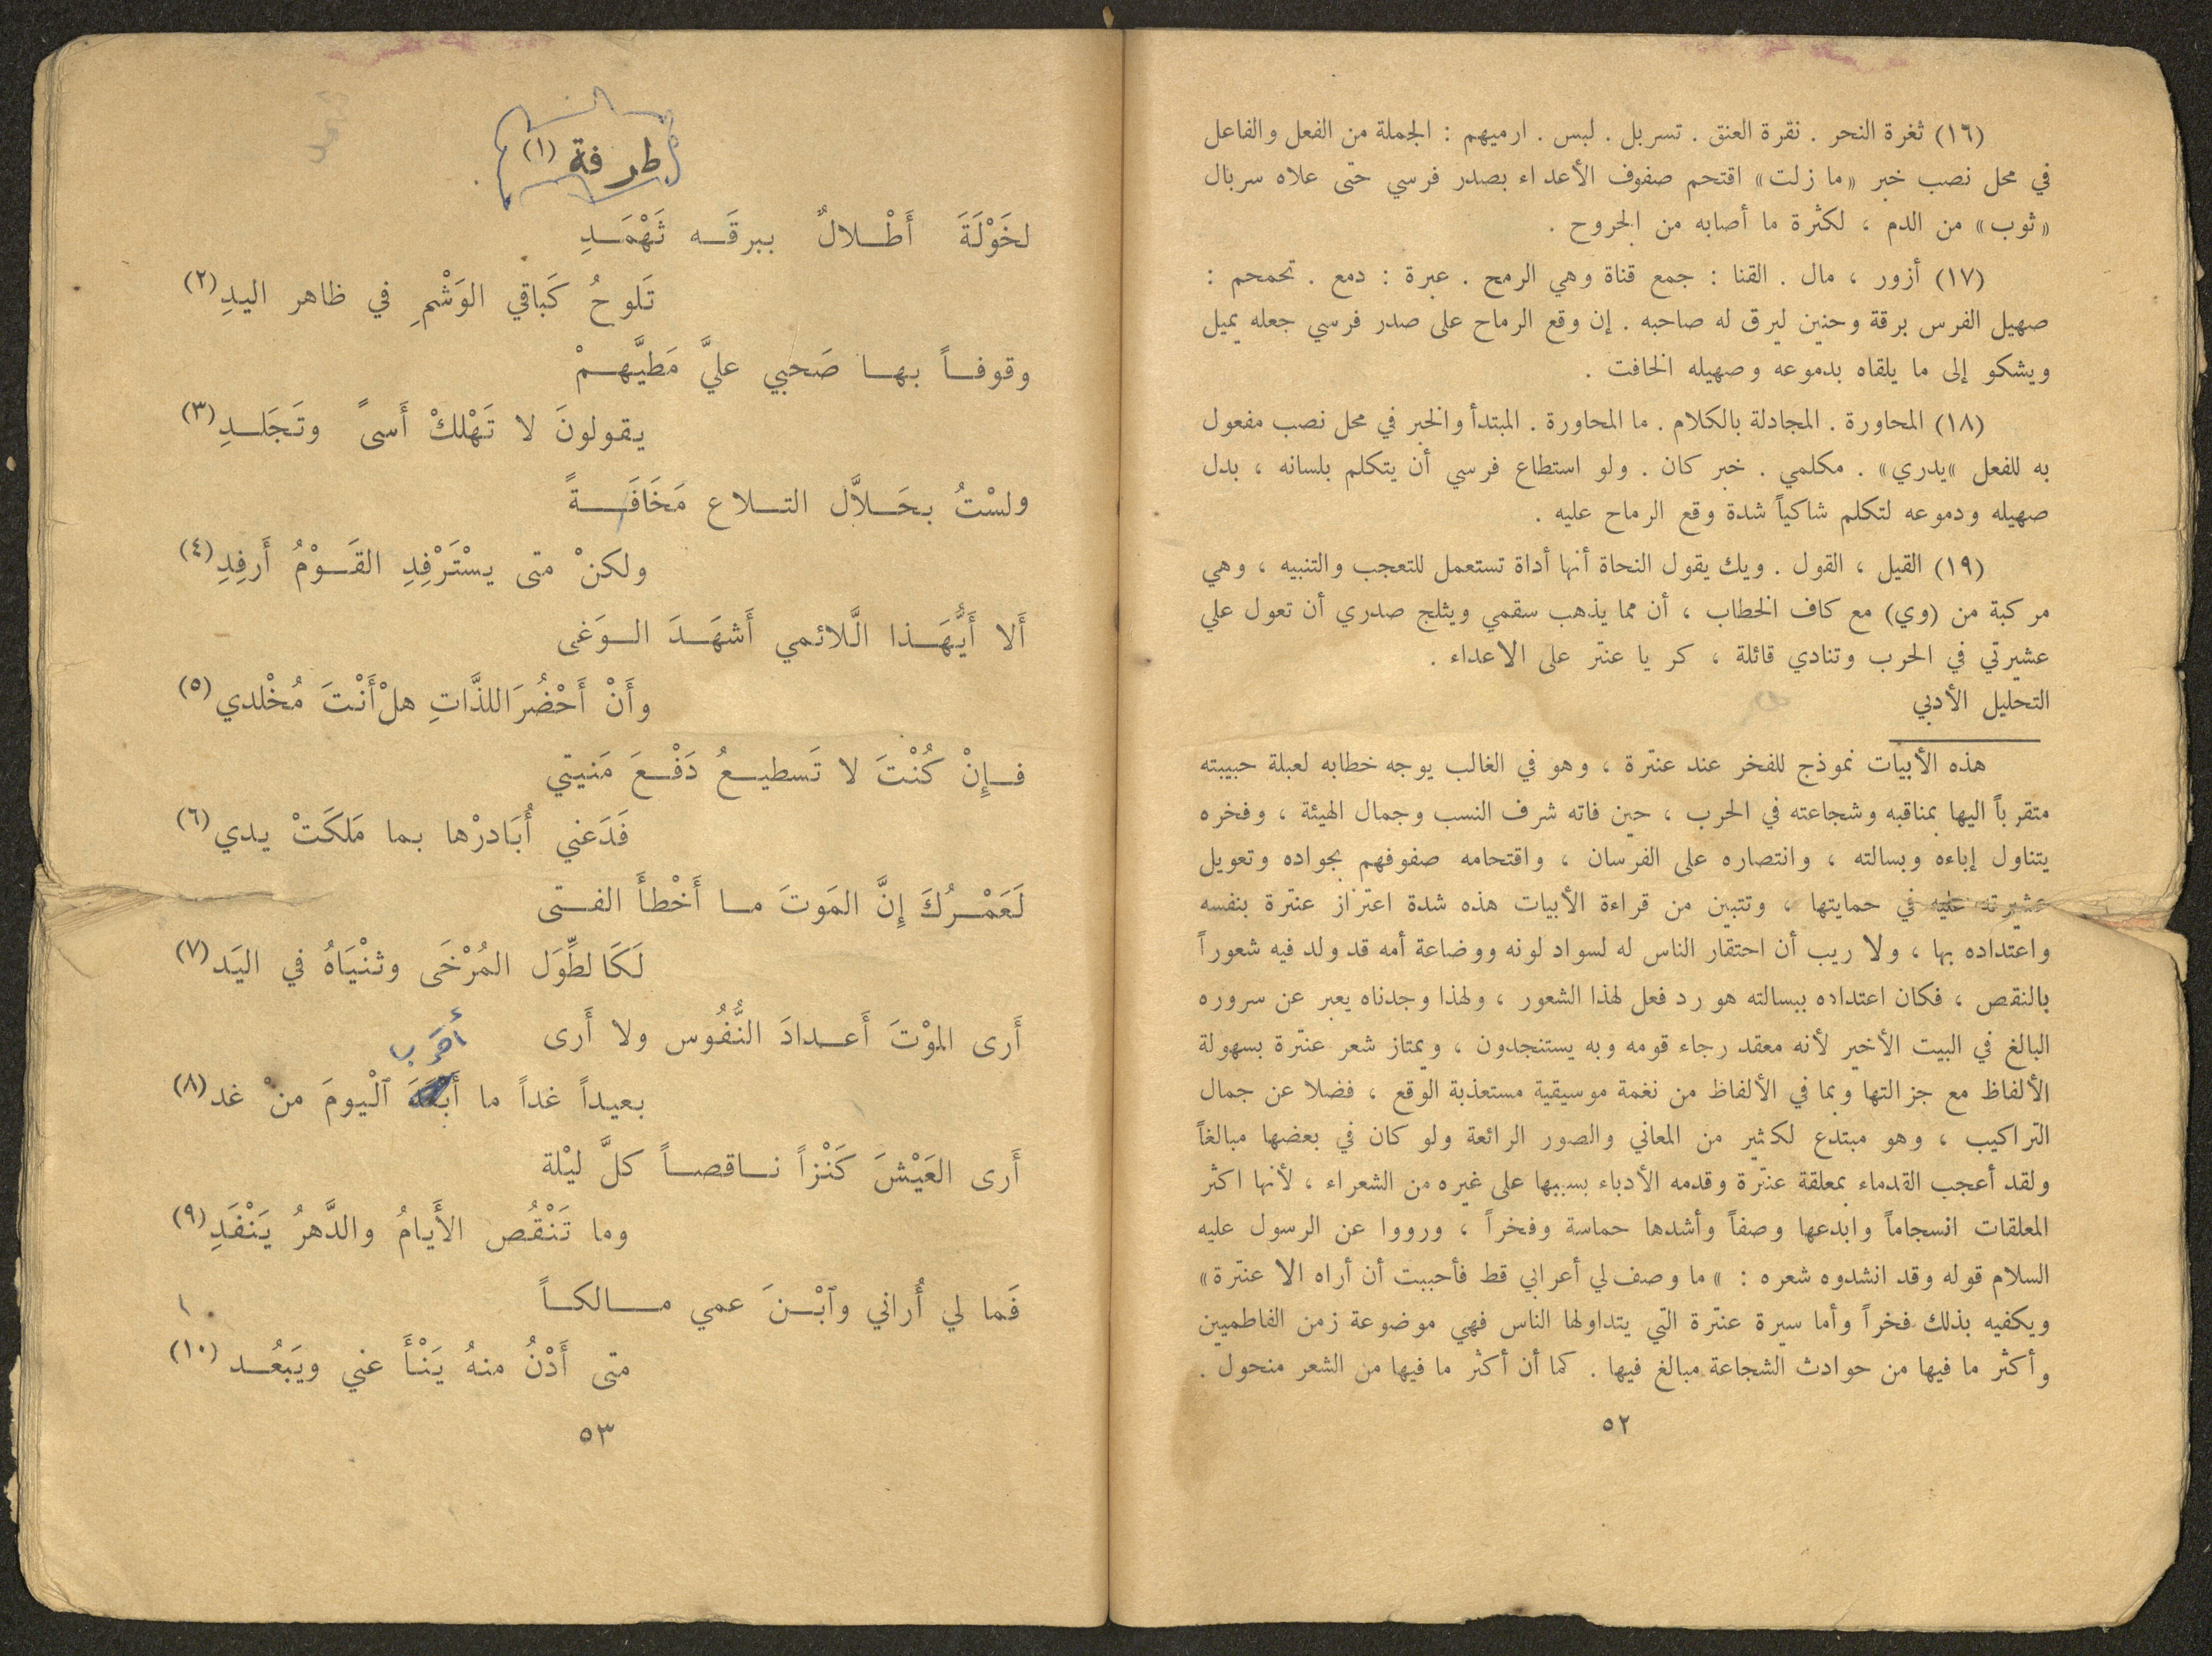 (١٦) ثغرة النحر . نقرة العنق . تسربل . لبس . ارميهم : الجملة من الفعل والفاعل
في محل نصب خبر «ما زلت» اقتحم صفوف الأعداء بصدر فرسي حتى علاه سربال
«ثوب» من الدم ، لكثرة ما أصابه من الجروح .
(١٧) أزور ، مال . القنا : جمع قناة وهي الرمح . عبرة : دمع . تحمحم :
صهيل الفرس برقة وحنين ليرق له صاحبه . إن وقع الرماح على صدر فرسي جعله يميل
ويشكو إلى ما يلقاه بدموعه وصهيله الخافت .
(١٨) المحاورة . المجادلة بالكلام . ما المحاورة . المبتدأ والخبر في محل نصب مفعول
به للفعل «يدري» . مكلمي . خبر كان . ولو استطاع فرسي أن يتكلم بلسانه ، بدل
صهيله ودموعه لتكلم شاكياً شدة وقع الرماح عليه .
(١٩) القيل ، القول . ويك يقول النحاة أنها أداة تستعمل للتعجب والتنبيه ، وهي
مركبة من (وي) مع كاف الخطاب ، أن مما يذهب سقمي ويثلج صدري أن تعول علي
عشيرتي في الحرب وتنادي قائلة ، كر يا عنتر على الاعداء .
التحليل الأدبي
هذه الأبيات نموذج للفخر عند عنترة ، وهو في الغالب يوجه خطابه لعبلة حبيبته
متقرباً اليها بمناقبه وشجاعته في الحرب ، حين فاته شرف النسب وجمال الهيئة ، وفخره
يتناول إباءه وبسالته ، وانتصاره على الفرسان ، واقتحامه صفوفهم بجواده وتعويل
عشيرته عليه في حمايتها ، وتتبين من قراءة الأبيات هذه شدة اعتزاز عنترة بنفسه
واعتداده بها ، ولا ريب أن احتقار الناس له لسواد لونه ووضاعة أمه قد ولد فيه شعوراً
بالنقص ، فكان اعتداده ببسالته هو رد فعل لهذا الشعور ، ولهذا وجدناه يعبر عن سروره
البالغ في البيت الأخير لأنه معقد رجاء قومه وبه يستنجدون ، ويمتاز شعر عنترة بسهولة
الألفاظ مع جزالتها وبما في الألفاظ من نغمة موسيقية مستعذبة الوقع ، فضلا عن جمال
التراكيب ، وهو مبتدع لكثير من المعاني والصور الرائعة ولو كان في بعضها مبالغاً
ولقد أعجب القدماء بمعلقة عنترة وقدمه الأدباء بسببها على غيره من الشعراء ، لأنها اكثر
المعلقات انسجاماً وابدعها وصفاً وأشدها حماسة وفخراً ، ورووا عن الرسول عليه
السلام قوله وقد انشدوه شعره : «ما وصف لي أعرابي قط فأحببت أن أراه الا عنترة»
ويكفيه بذلك فخراً وأما سيرة عنترة التي يتداولها الناس فهي موضوعة زمن الفاطميين
وأكثر ما فيها من حوادث الشجاعة مبالغ فيها . كما أن أكثر ما فيها من الشعر منحول .
٥٢
طرفة (١)
لخَوْلَةَ أَطْلالٌ ببرقَه ثَهْمَدِ
تَلوحُ كَباقي الوَشْمِ في ظاهر اليدِ (٢)
وقوفاً بها صَحبي عليَّ مَطيَّهمْ
يقولونَ لا تَهْلكْ أَسىً وتَجَلدِ (٣)
ولسْتُ بحَلاَّل التلاع مَخَافَةً
ولكنْ متى يسْتَرْفِدِ القَوْمُ أَرفِدِ (٤)
أَلا أَيُّهَذا الَّلائمي أَشهَدَ الوَغى
وأَنْ أَحْضُرَ اللذَّاتِ هلْ أَنْتَ مُخْلدي (٥)
فإِنْ كُنْتَ لا تَسطيعُ دَفْعَ مَنيتي
فَدَعني أُبَادرْها بما مَلكَتْ يدي (٦)
لَعَمْرُكَ إِنَّ المَوتَ ما أَخْطأَ الفتى
لَكَالطِّوَل المُرْخَى وثنْيَاهُ في اليَد (٧)
أَرى الموْتَ أَعدادَ النُّفُوس ولا أَرى
أقرَب
بعيداً غداً ما أَبعَدَ ٱلْيومَ منْ غد (٨)
أَرى العَيْشَ كَنْزاً ناقصاً كلَّ ليْلة
وما تَنْقُص الأَيامُ والدَّهرُ يَنْفَدِ (٩)
فَما لي أُراني وٱبْنَ عمي مالكاً
متى أَدْنُ منهُ يَنْأَ عني ويَبعُد (١٠)
٥٣